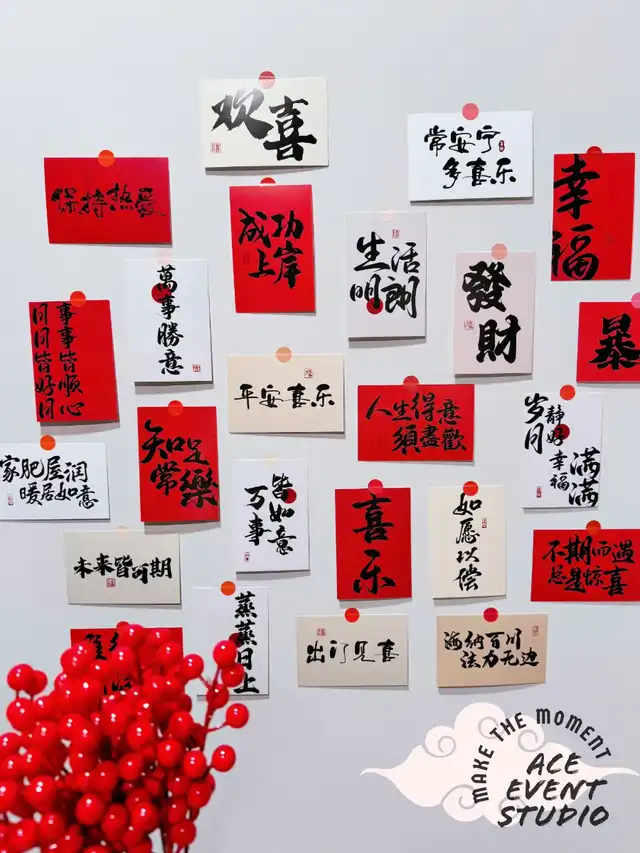 欢喜
常安宁
多喜乐
幸福
保持热爱
成功
上岸
生活
明朗
發財
萬事勝意
日日皆好日
事事皆顺心
暴
平安喜乐
人生得意
須盡歡
岁月静好
幸福满满
家肥屋润
暖居如意
知足
常樂
万事
皆如意
喜乐
如愿以偿
不期而遇
总是惊喜
未来皆可期
蒸蒸日上
出门见喜
海纳百川
法力无边
MAKE THE MOMENT
ACE
EVENT
STUDIO